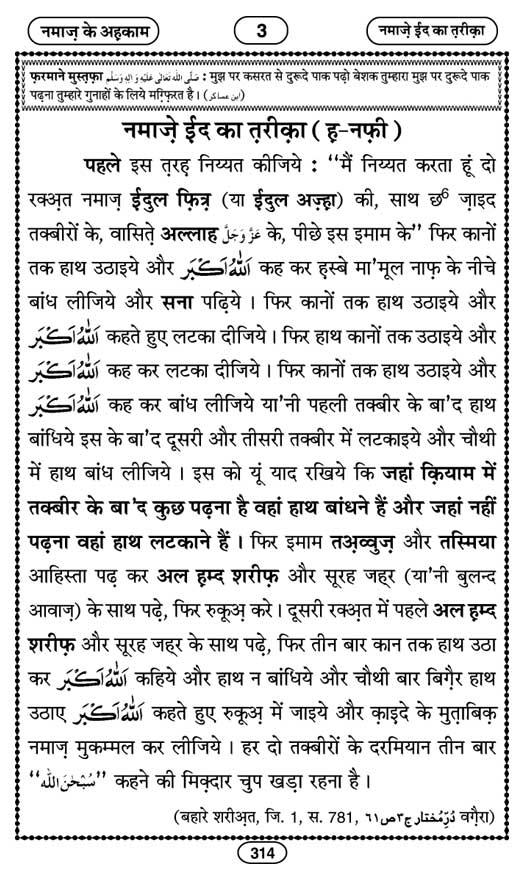 नमाज़ के अहकाम
3
नमाज़े ईद का त़रीक़ा
फ़रमाने मुस्त़फ़ा صَلَّى اللهُ تَعَالٰى عَلَيْهِ وَاٰلِهٖ وَسَلَّم : मुझ पर कसरत से दुरूदे पाक पढ़ो बेशक तुम्हारा मुझ पर दुरूदे पाक
पढ़ना तुम्हारे गुनाहों के लिये मग़्फ़िरत है। (ابن عساکر)
नमाज़े ईद का त़रीक़ा ( ह़-नफ़ी )
पहले इस त़रह़ निय्यत कीजिये : “मैं निय्यत करता हूं दो
रक्अ़त नमाज़ ईदुल फ़ित्र (या ईदुल अज़्ह़ा) की, साथ छ6 ज़ाइद
तक्बीरों के, वासित़े अल्लाह عَزَّوَجَلَّ के, पीछे इस इमाम के” फिर कानों
तक हाथ उठाइये और اَللّٰهُ اَكْبَر कह कर ह़स्बे मा'मूल नाफ़ के नीचे
बांध लीजिये और सना पढ़िये । फिर कानों तक हाथ उठाइये और
اَللّٰهُ اَكْبَر कहते हुए लटका दीजिये । फिर हाथ कानों तक उठाइये और
اَللّٰهُ اَكْبَر कह कर लटका दीजिये । फिर कानों तक हाथ उठाइये और
اَللّٰهُ اَكْبَر कह कर बांध लीजिये या'नी पहली तक्बीर के बा'द हाथ
बांधिये इस के बा'द दूसरी और तीसरी तक्बीर में लटकाइये और चौथी
में हाथ बांध लीजिये । इस को यूं याद रखिये कि जहां क़ियाम में
तक्बीर के बा'द कुछ पढ़ना है वहां हाथ बांधने हैं और जहां नहीं
पढ़ना वहां हाथ लटकाने हैं । फिर इमाम तअ़व्वुज़ और तस्मिया
आहिस्ता पढ़ कर अल ह़म्द शरीफ़ और सूरह जह्र (या'नी बुलन्द
आवाज़) के साथ पढ़े, फिर रुकूअ़ करे । दूसरी रक्अ़त में पहले अल ह़म्द
शरीफ़ और सूरह जह्र के साथ पढ़े, फिर तीन बार कान तक हाथ उठा
कर اَللّٰهُ اَكْبَر कहिये और हाथ न बांधिये और चौथी बार बिग़ैर हाथ
उठाए اَللّٰهُ اَكْبَر कहते हुए रुकूअ़ में जाइये और क़ाइदे के मुत़ाबिक़
नमाज़ मुकम्मल कर लीजिये । हर दो तक्बीरों के दरमियान तीन बार
“سُبْحٰنَ اللّٰه” कहने की मिक़्दार चुप खड़ा रहना है ।
(बहारे शरीअ़त, जि. 1, स. 781, دُرِّمُختار ج۳ص۶۱ वग़ैरा)
314